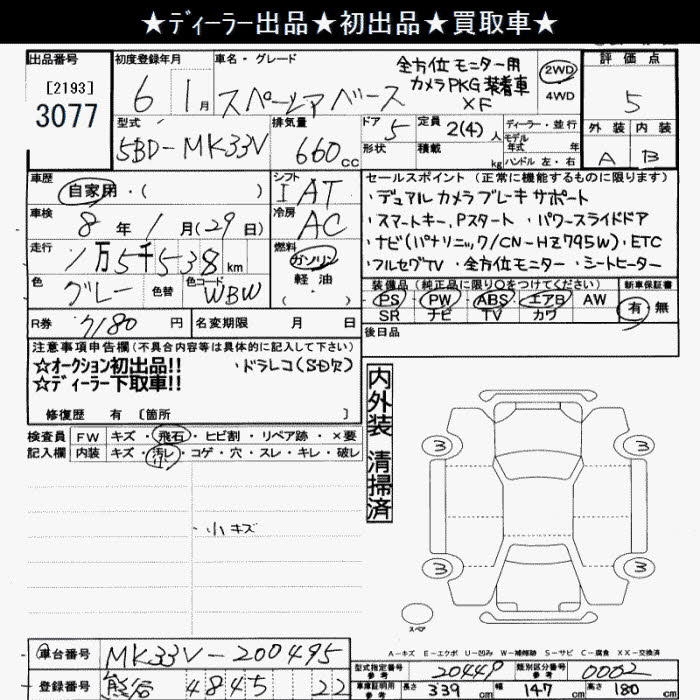 ★ディーラー出品★初出品★買取車★
出品番号 [2193] 3077
初度登録年月 6 1月
車名・グレード スペーシアベース XF
全方位モニター用カメラPKG装着車
2WD 4WD
評価点 5
外装 A 内装 B
型式 5BD-MK33V
排気量 660cc
ドア 5 定員 2(4)人
形状 積載 kg
ディーラー・並行
モデル年式 年
ハンドル 左・右
車歴 自家用・( )
シフト IAT
車検 8年1月(29日)
冷房 AC
走行 1万5千538km
燃料 ガソリン 軽油( )
色 グレー 色替 色コード WBW
R券 7180円
名変期限 月 日
セールスポイント(正常に機能するものに限ります)
・デュアルカメラブレーキサポート
・スマートキー、Pスタート ・パワースライドドア
・ナビ(パナソニック/CN-HZ795W)・ETC
・フルセグTV ・全方位モニター ・シートヒーター
装備品(純正品に限り○をつけてください) 新車保証書
PS PW ABS エアB AW 有・無
SR ナビ TV カワ
後日品
注意事項申告欄(不具合内容等は具体的に記入して下さい)
☆オークション初出品!! ・ドラレコ(SD欠)
☆ディーラー下取車!!
修復歴 有 〔箇所 〕
検査員 FW キズ・飛石・ヒビ割・リペア跡・×要
記入欄 内装 キズ・汚レ・コゲ・穴・スレ・キレ・破レ
小
・小キズ
内外装 清掃済
3 3
3 3
スペア
A-キズ E-エクボ U-凹み W-補修跡 S-サビ C-腐食 XX-交換済
車台番号 MK33V-200495
登録番号 熊谷 4845 22
型式指定番号 参考 20449 類別区分番号 参考 0002
車庫証明用 参考 長さ 339cm 幅 147cm 高さ 180cm